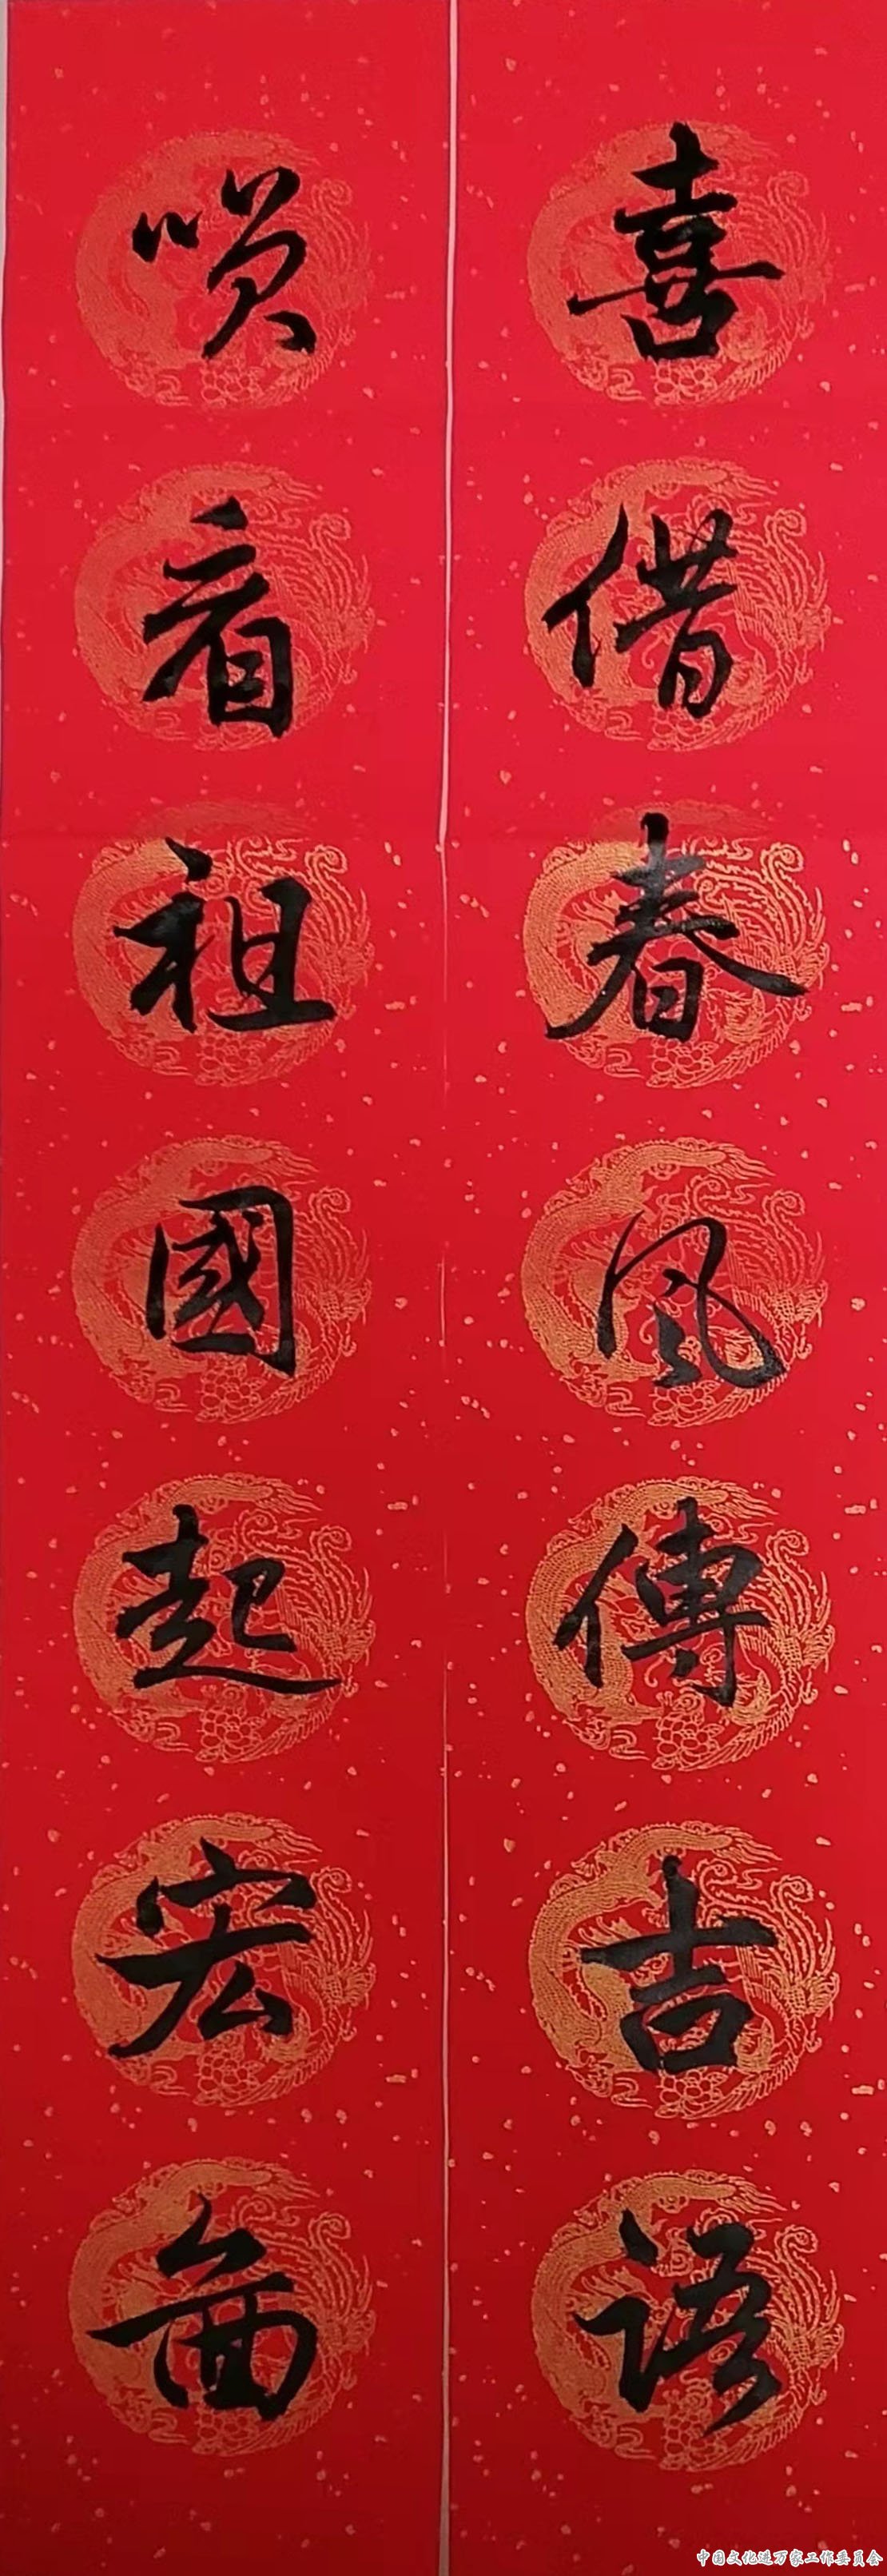 喜借春風傳吉語
咲看祖國起宏圖
中国文化进万家工作委员会